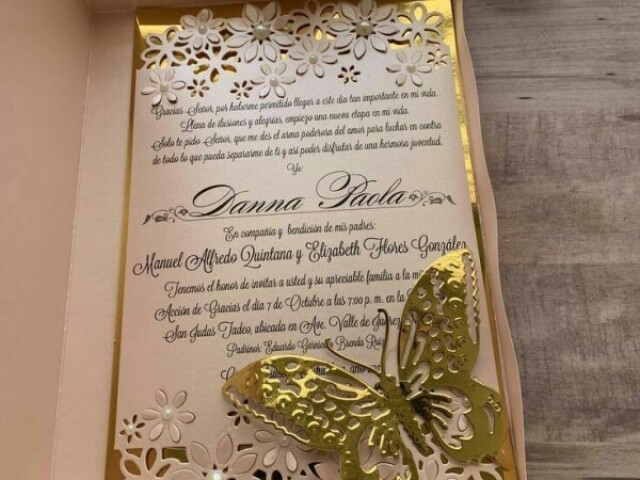 Gracias Señor, por haberme permitido llegar a este día tan importante en mi vida.
Llena de ilusiones y alegrías, empiezo una nueva etapa en mi vida.
Solo te pido Señor, que me des el arma poderosa del amor para luchar en contra
de todo lo que pueda separarme de ti y así poder disfrutar de una hermosa juventud.
Yo:
Danna Paola
En compañía y bendición de mis padres:
Manuel Alfredo Quintana y Elizabeth Flores González
Tenemos el honor de invitar a usted y su apreciable familia a la
Acción de Gracias el día 7 de Octubre a las 7:00 p. m. en la
San Judas Tadeo, ubicada en Ave. Valle de
Padrinos: Eduardo Brenda